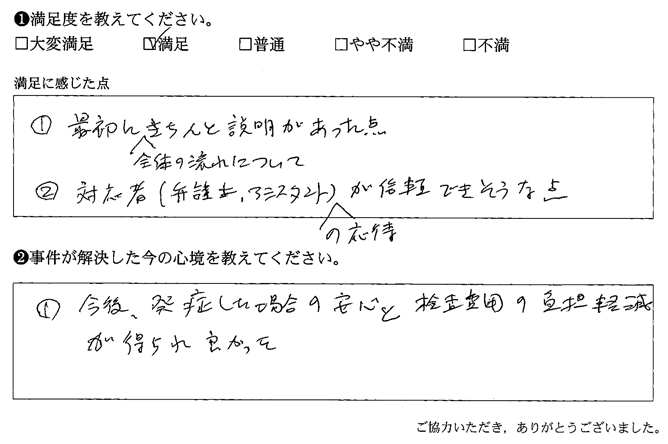 ❶満足度を教えてください。
□大変満足 ☑満足 □普通 □やや不満 □不満
満足に感じた点
① 最初にきちんと説明があった点
全体の流れについて
② 対応者(弁護士,アシスタント)が信頼できそうな点
の応待
❷事件が解決した今の心境を教えてください。
① 今後、発症した場合の安心と検査費用の負担軽減
が得られ良かった
ご協力いただき，ありがとうございました。